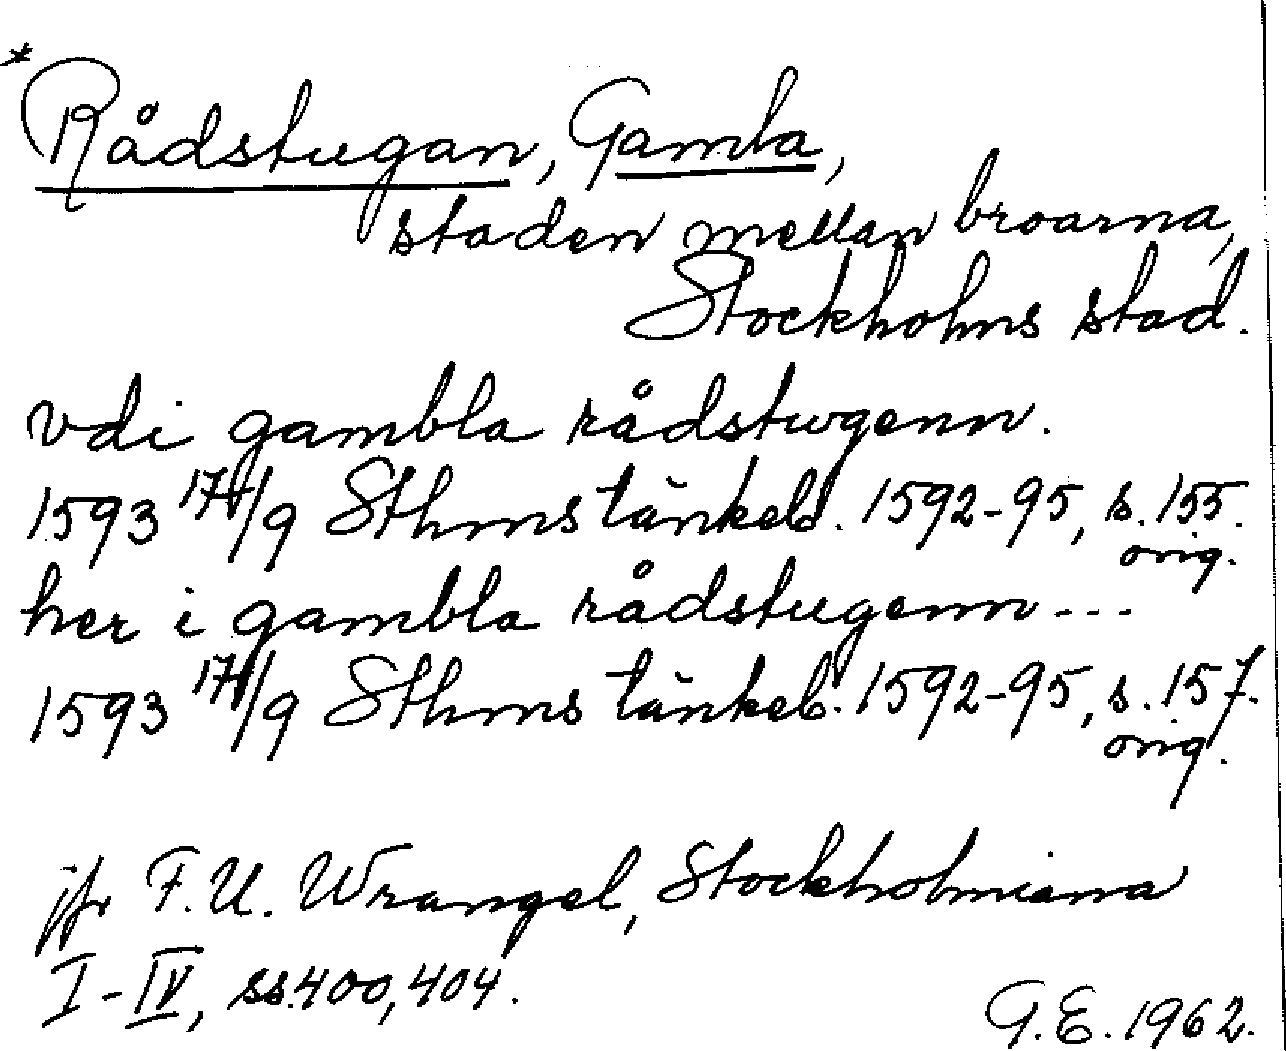 *Rådstugan, Gamla,
staden mellan broarna,
Stockholms stad.
vdi gambla rådstwgenn.
1593 17/9 Sthms tänkeb. 1592-95, s. 155.
orig.
her i gambla rådstugenn---
1593 17/9 Sthms tänkeb. 1592-95, s. 157.
orig.
jfr F.U. Wrangel, Stockholmiana
I-IV, ss. 400, 404.
G.E. 1962.